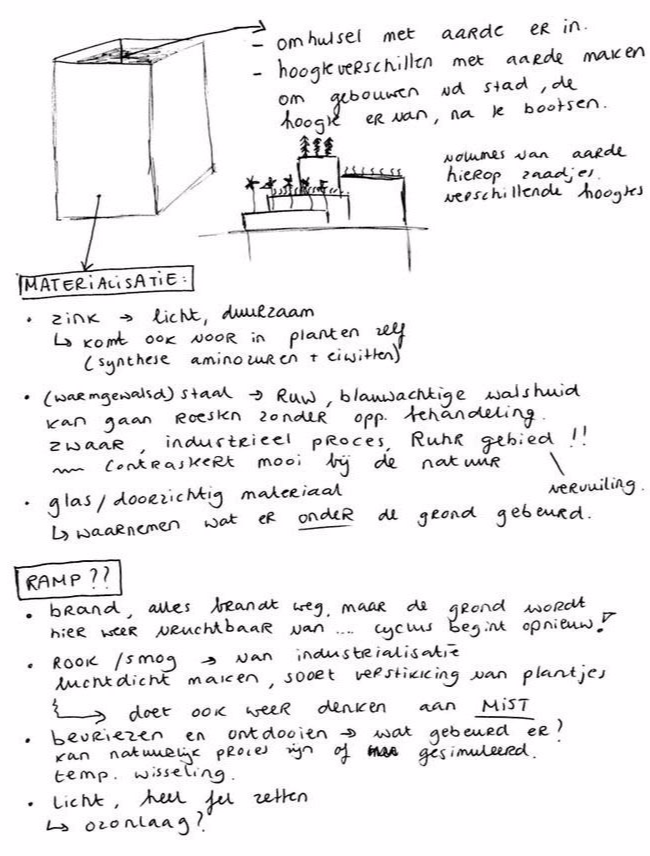 - omhulsel met aarde er in.
- hoogteverschillen met aarde maken
om gebouwen vd stad, de
hoogte er van, na te bootsen.
volumes van aarde
hierop zaadjes.
verschillende hoogtes
MATERIALISATIE:
• zink → licht, duurzaam
↳ komt ook voor in planten zelf
(synthese aminozuren + eiwitten)
• (warmgewalsd) staal → Ruw, blauwachtige walshuid
kan gaan roesten zonder opp. behandeling.
zwaar, industrieel proces, Ruhr gebied !!
~ contrasteert mooi bij de natuur
vervuiling.
• glas/doorzichtig materiaal
↳ waarnemen wat er onder de grond gebeurd.
RAMP??
• brand, alles brandt weg, maar de grond wordt
hier weer vruchtbaar van .... cyclus begint opnieuw!
• Rook/smog → van industrialisatie
luchtdicht maken, soort verstikking van plantjes
↳ doet ook weer denken aan MIST
• bevriezen en ontdooien → wat gebeurd er?
kan natuurlijk proces zijn of gesimuleerd.
temp. wisseling.
• licht, heel fel zetten
↳ ozonlaag?